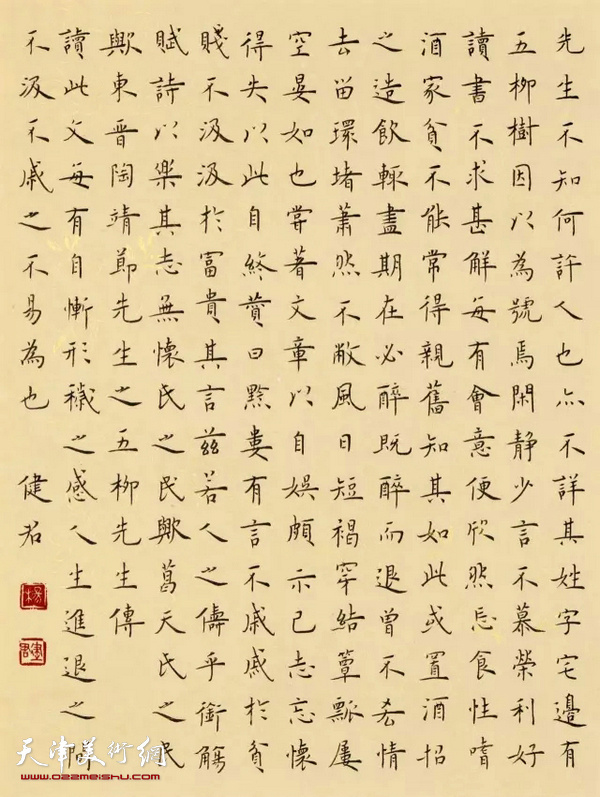 先生不知何許人也亦不詳其姓字宅邊有
五柳樹因以為號焉閑静少言不慕榮利好
讀書不求甚解每有會意便欣然忘食性嗜
酒家貧不能常得親舊知其如此或置酒招
之造飲輒盡期在必醉既醉而退曾不吝情
去留環堵蕭然不敝風日短褐穿結簞瓢屢
空晏如也嘗著文章以自娱頗示己志忘懷
得失以此自終贊曰黔婁有言不戚戚於貧
賤不汲汲於富貴其言兹若人之儔乎銜觴
賦詩以樂其志無懷氏之民歟葛天氏之民
歟東晋陶靖節先生之五柳先生傳
讀此文每有自慚形穢之感人生進退之間
不汲不戚之不易為也 健君
天津美術網
www.022meishu.com